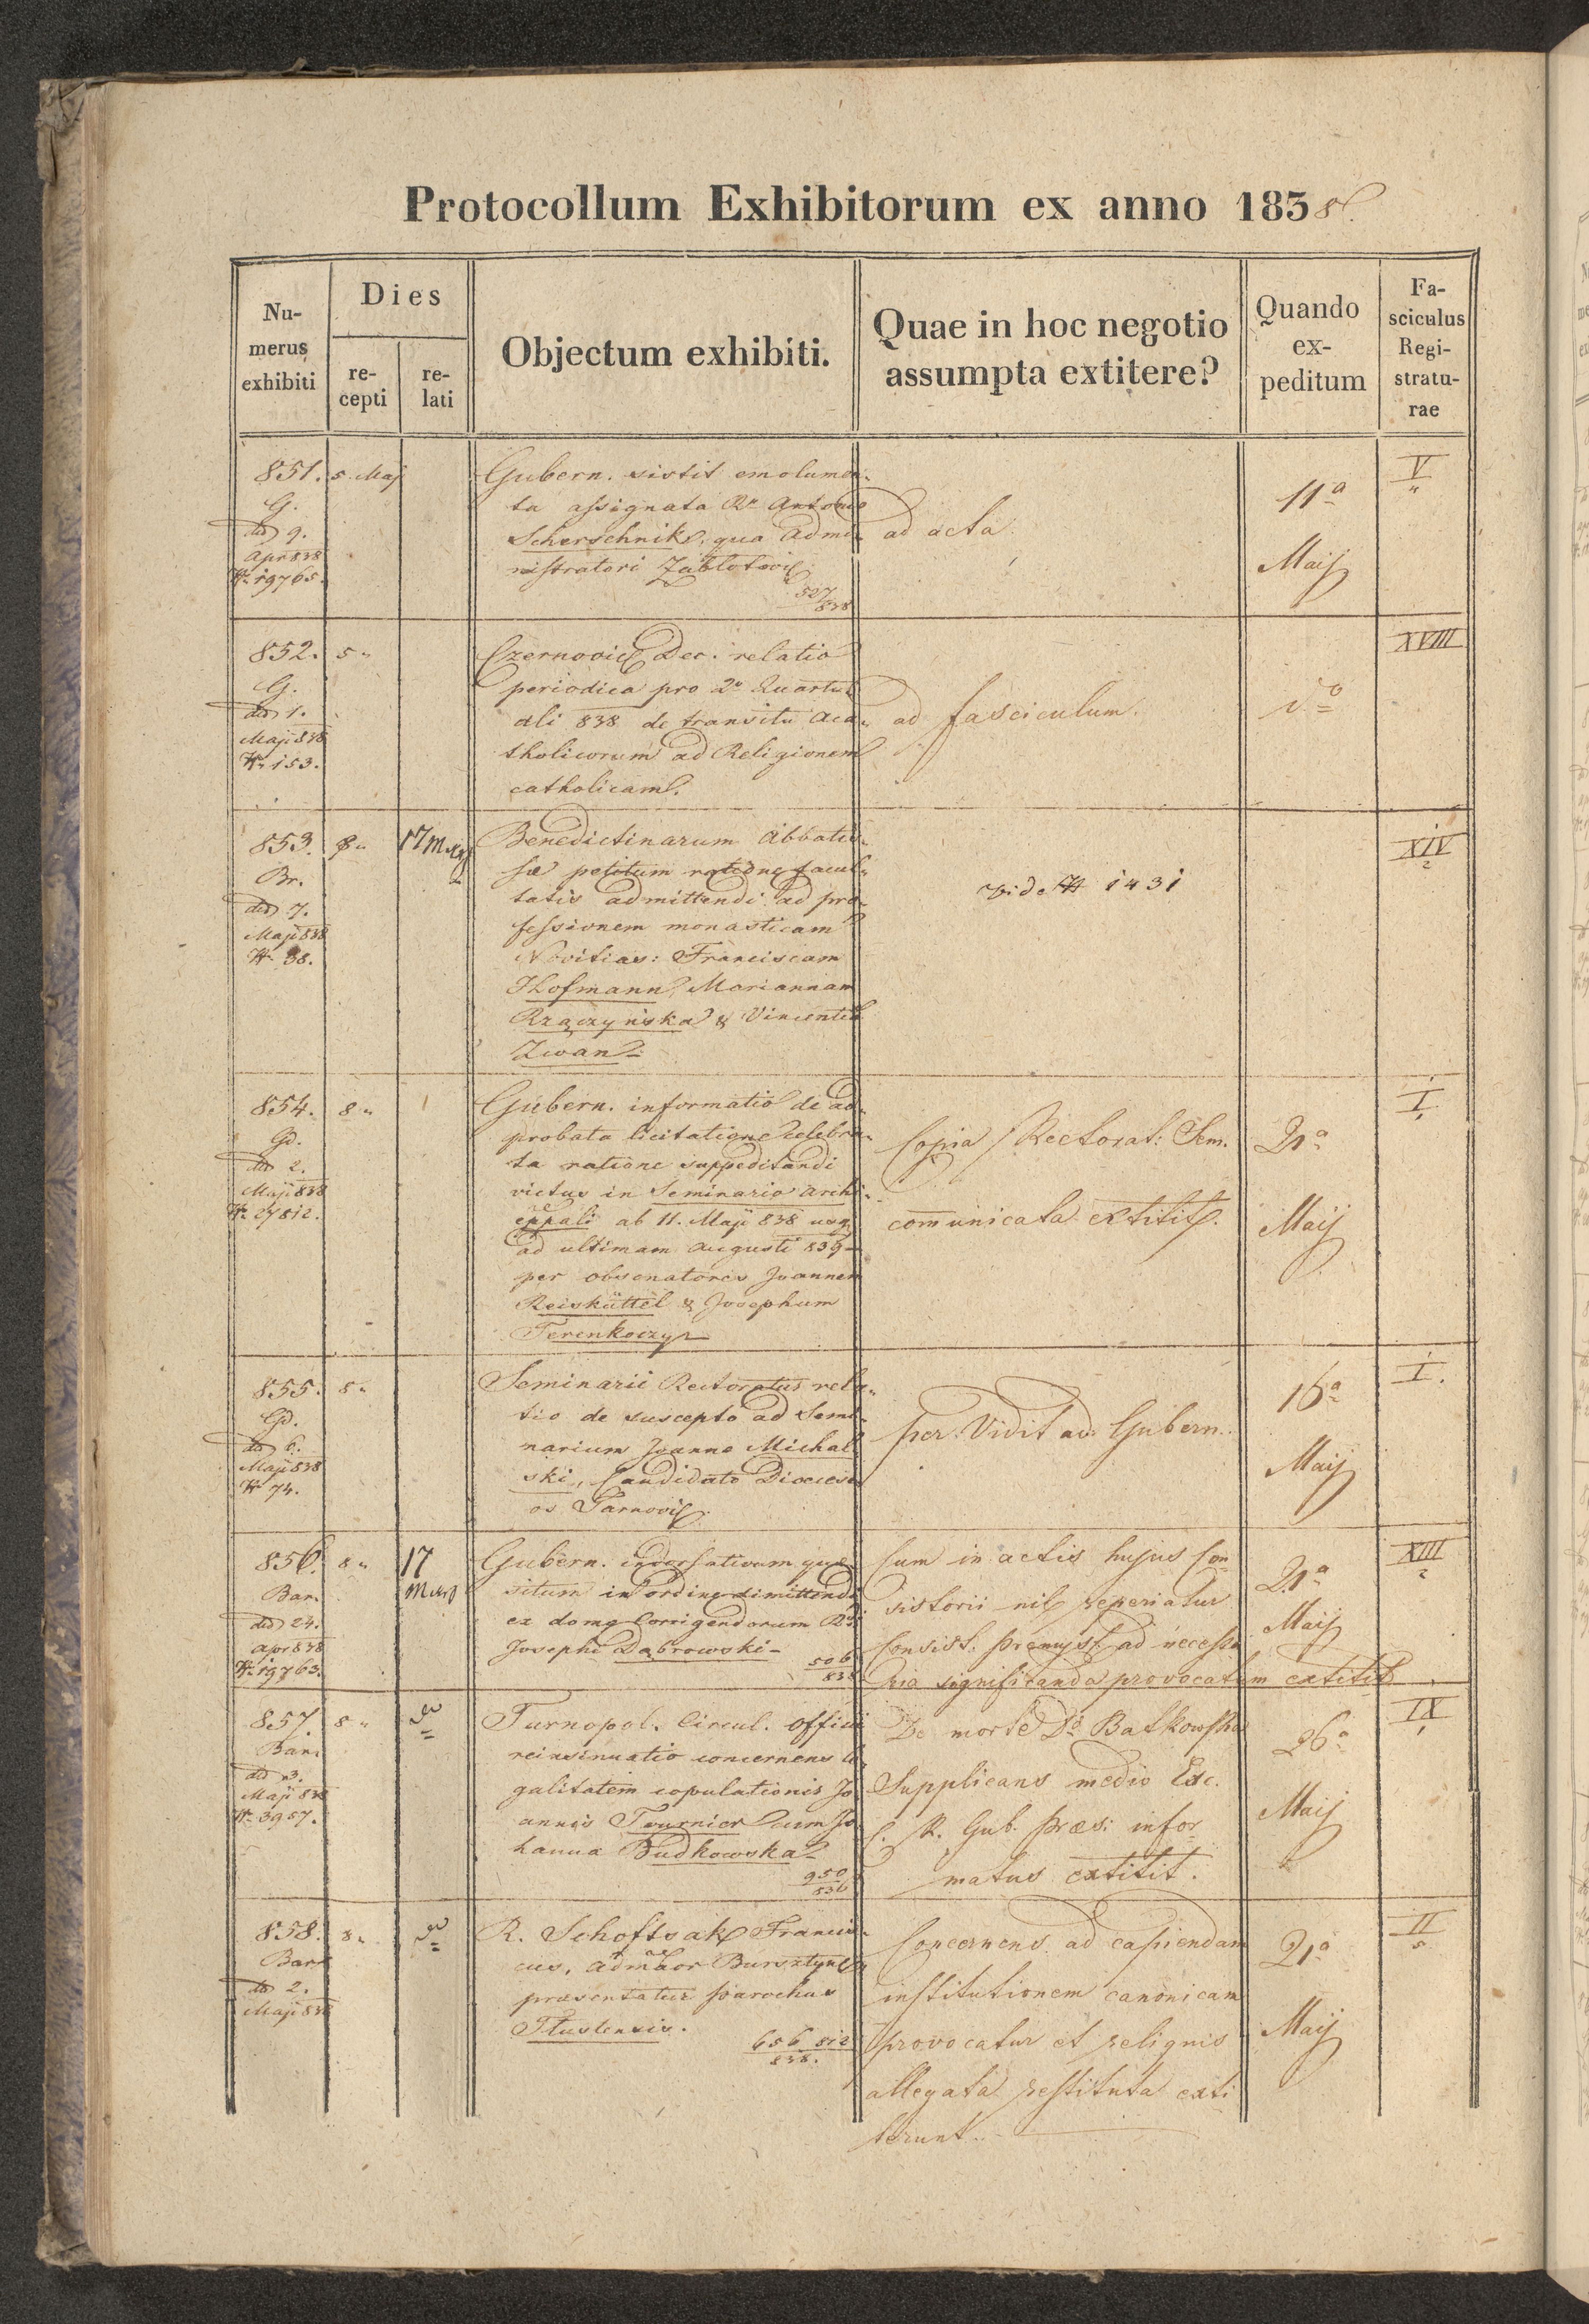 Protocollum Exhibitorum ex anno 1838.
Nu-
merus
exhibiti
Dies
re-
cepti
re-
lati
Objectum exhibiti.
Quae in hoc negotio
assumpta extitere?
Quando
ex-
peditum
Fa-
sciculus
Regi-
stratu-
rae
851.
G.
ddto 9.
Apr 838
N. 19765.
5. Maj
Gubern. sistit emolumen-
ta assignata Ro Antonio
Scherschnik, qua Admi-
nistratori Zablotovi
527/838
ad acta
11a
Maij
V
852.
G.
ddto 1.
Maji 838
N. 153.
5 "
Czernovic Dec. relatio
periodica pro 2o Quartu-
ali 838 de transitu Aca-
tholicorum ad Religionem
catholicam.
ad fasciculum.
XVIII
853.
Br.
ddto 7.
Maji 838
N. 38.
8 "
17 Maij
Benedictinarum Abbatis-
sæ petitum ratione facul-
tatis admittendi ad pro-
fessionem monasticam
Novitias: Franciscam
Hofmann, Mariannam
Rzączyńska & Vincentia
Zwan
vide N 1431
XIV
2
854.
Gd.
ddto 2.
Maji 838
N. 27812.
8 "
Gubern. informatio de ad-
probata licitatione celebra-
ta ratione suppeditandi
victus in Seminario archi-
eppali ab 11. Maji 838 usq
ad ultimam Augusti 839
per obsonatores Joannem
Reisküttel & Josephum
Terenkoczy
Copia Rectorat: Sem.
communicata extitit.
21a
Maij
I
855.
Gd.
ddto 6.
Maji 838
N 74.
8 "
Seminarii Rectoratus rela-
tio de suscepto ad Semi-
narium Joanne Michal-
ski, Candidato Dioeces-
os Tarnovi
per Vidit ad Gubern.
16a
Maij
I.
856.
Bar.
ddto 24.
Apr 838
N. 19763.
8 "
17
Maij
Gubern. indorsativum quæ-
situm in ordine dimittendi
ex domo Corrigendorum Rdi
Josephi Dąbrowski
506
838
Cum in actis hujus Con
sistorii nil reperiatur
Consist. Præmysl ad necessa
ria significanda provocatum extitit
21a
Maij
XIII
2
857.
Bar.
ddto 3.
Maji 838
N. 3957.
8 "
Tarnopol. Circul. Officii
reinsinuatio concernens le-
galitatem copulationis Jo
annis Tournier cum Jo
hanna Budkowska
950
836
De morte Batkowska
Supplicans medio Exc.
C. R. Gub. Præs: infor
matus extitit.
26a
Maij
IX
858.
Bar.
ddto 2.
Maji 838
8 "
R. Schoftsak Francis-
cus, Admaor Bursztyn
præsentatur parochus
Tlustensis.
656 812
838.
Concernens ad capiendam
institutionem canonicam
provocatur et reliquis
allegata restituta exti
terunt.
21a
Maij
II
5